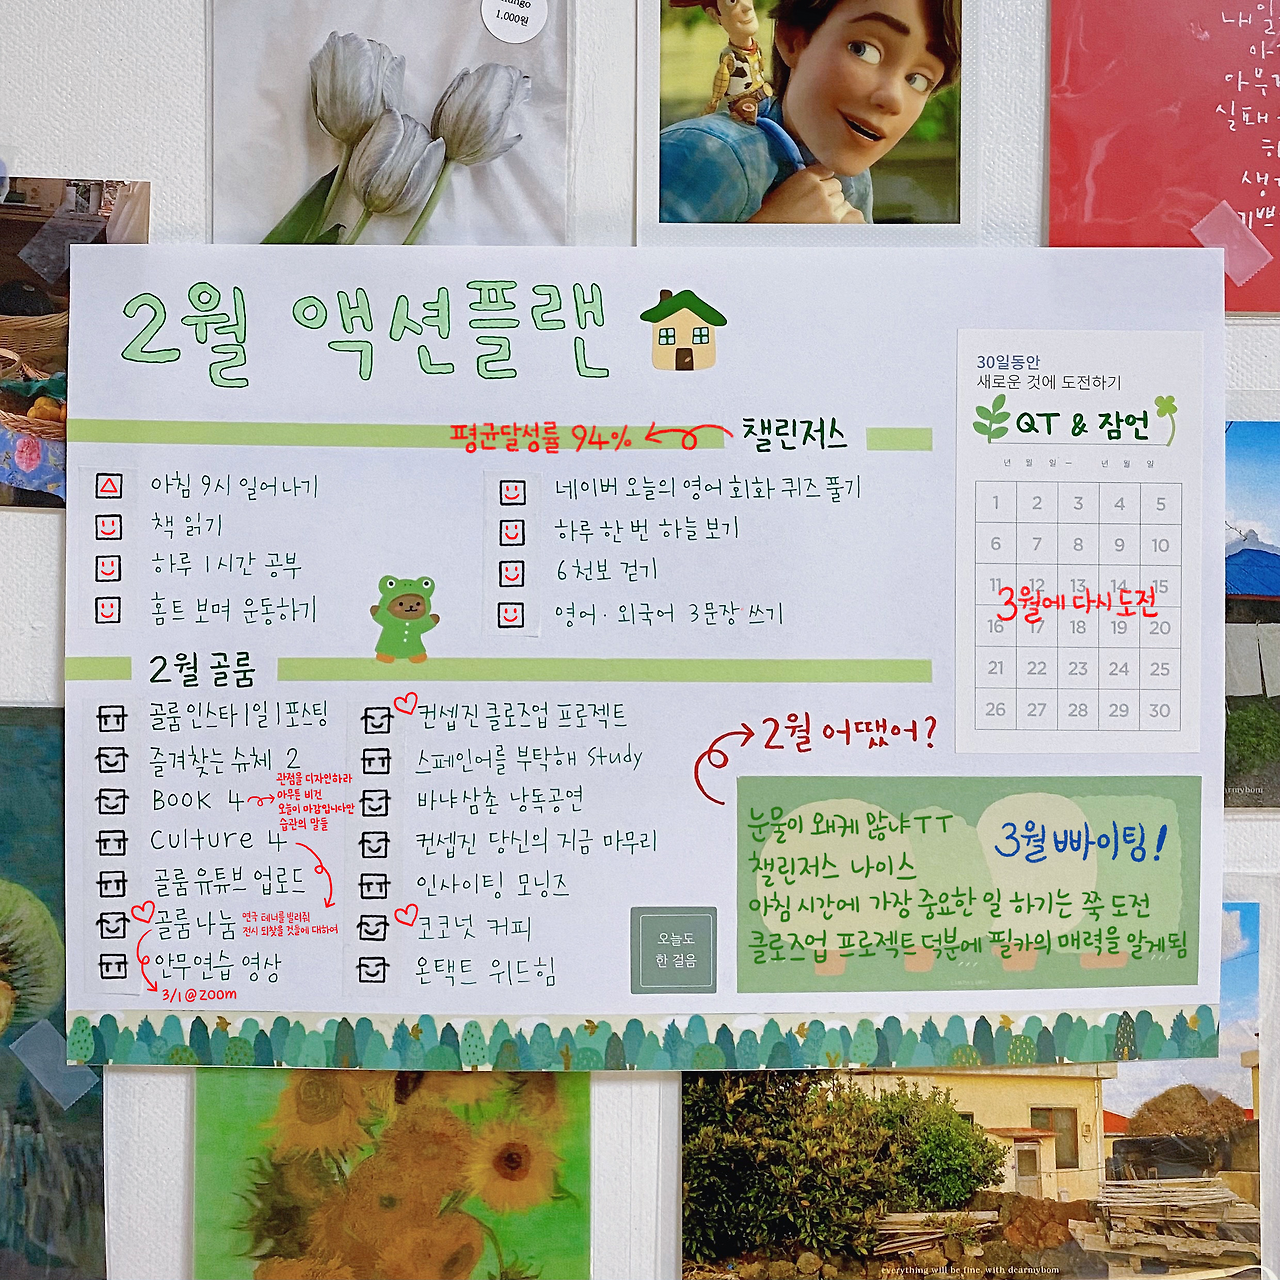 1,000원
2월 액션플랜
평균달성률 94%
챌린저스
아침 9시 일어나기
책 읽기
하루 1시간 공부
홈트 보며 운동하기
네이버 오늘의 영어회화 퀴즈 풀기
하루 한 번 하늘 보기
6천보 걷기
영어·외국어 3문장 쓰기
30일동안
새로운 것에 도전하기
QT & 잠언
년 월 일 – 년 월 일
1 2 3 4 5
6 7 8 9 10
11 12 13 14 15
3월에 다시 도전
16 17 18 19 20
21 22 23 24 25
26 27 28 29 30
2월 골룸
골룸 인스타 1일 1포스팅
즐겨찾는 슈체 2
BOOK 4
관점을 디자인하라
아무튼 비건
오늘이 마감입니다만
습관의 말들
Culture 4
골룸 유튜브 업로드
골룸 나눔
연극 테너를 빌려줘
전시 되찾을 것들에 대하여
안무연습 영상
3/1 @ zoom
컨셉진 클로즈업 프로젝트
스페인어를 부탁해 Study
바냐삼촌 낭독공연
컨셉진 당신의 지금 마무리
인사이팅 모닝즈
코코넛 커피
온택트 위드힘
오늘도
한 걸음
2월 어땠어?
눈물이 왜케 많냐ㅜㅜ
챌린저스 나이스
아침 시간에 가장 중요한 일 하기는 쭉 도전
클로즈업 프로젝트 덕분에 필카의 매력을 알게됨
3월 빠이팅!
everything will be fine, with dearmybom